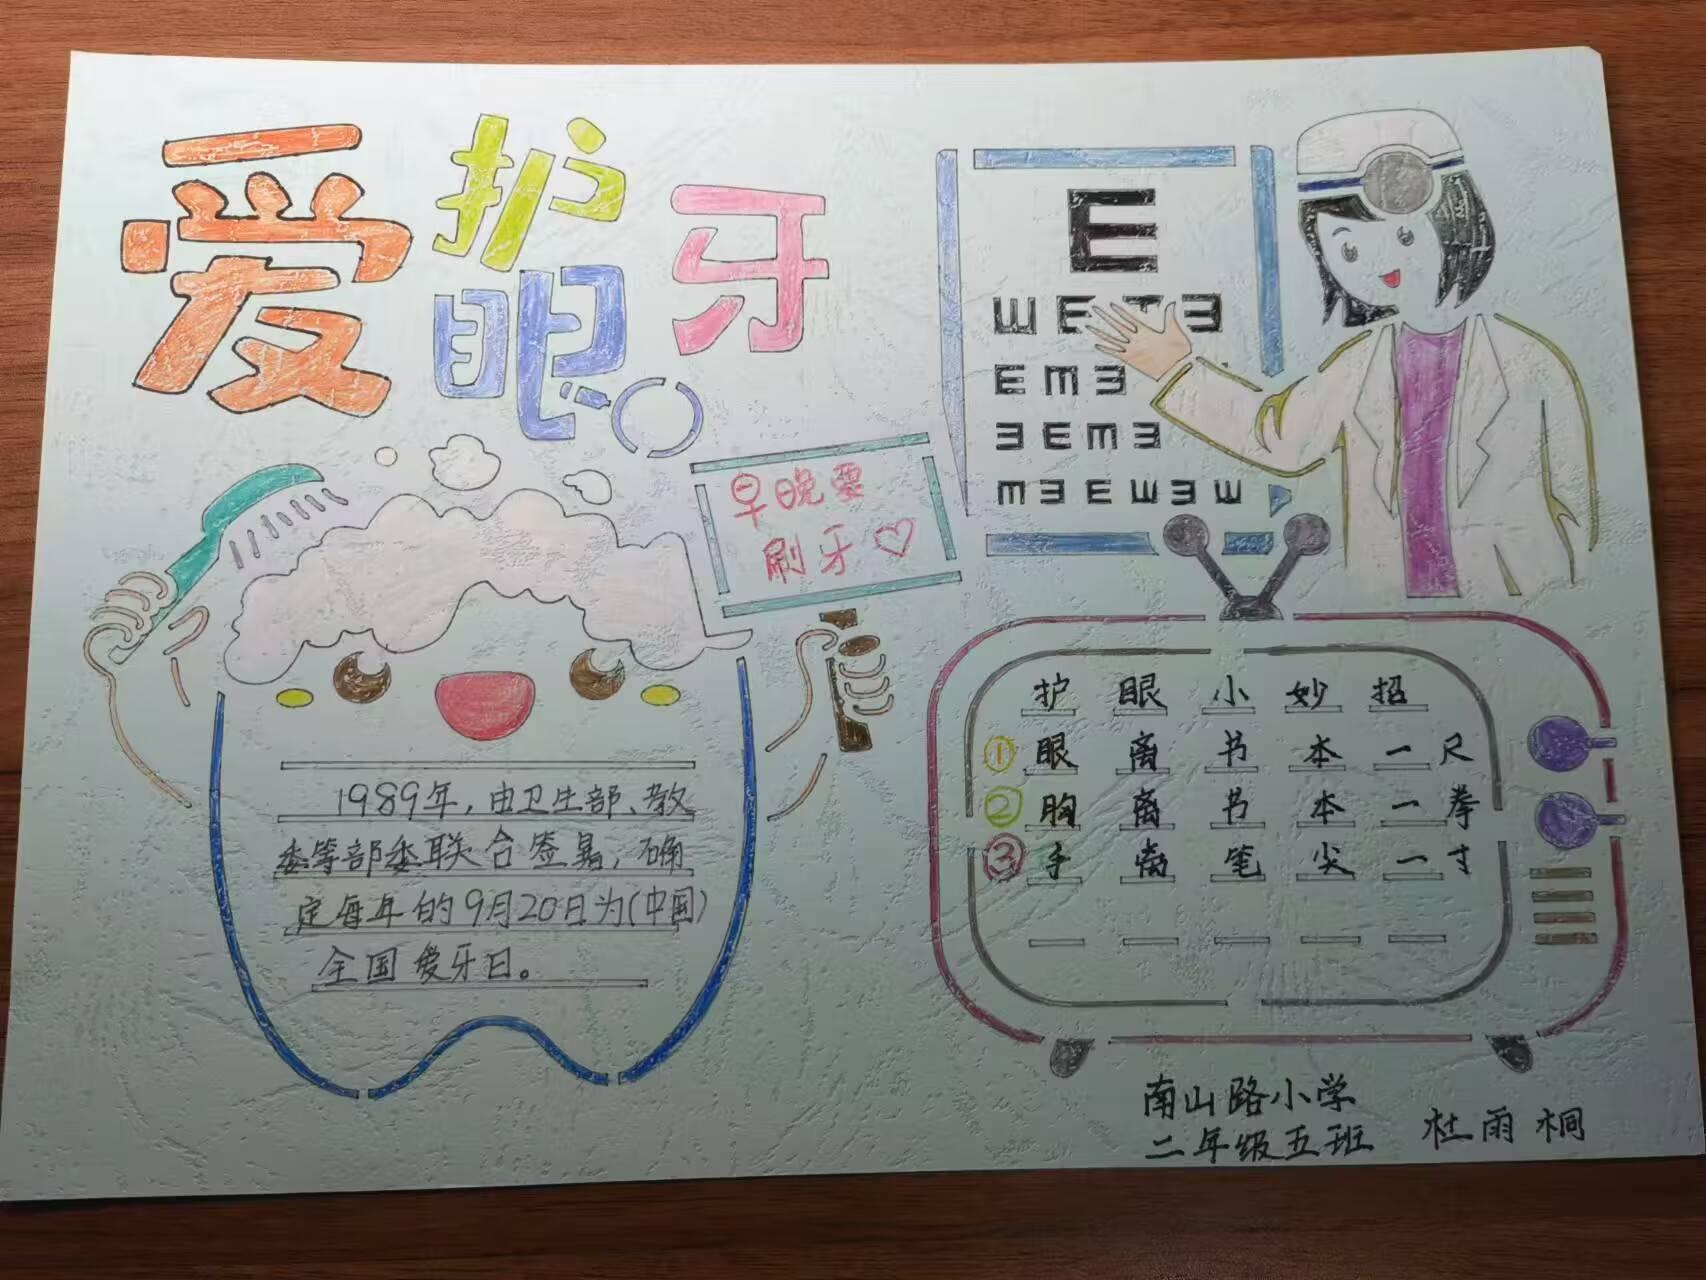 爱护眼牙
早晚要
刷牙
E
ШEТЭ
EmƎ
ƎEmƎ
mƎEШƎШ
1989年，由卫生部、教
委等部委联合签署，确
定每年的9月20日为（中国）
全国爱牙日。
护眼小妙招
①眼离书本一尺
②胸离书本一拳
③手离笔尖一寸
南山路小学
二年级五班 杜雨桐